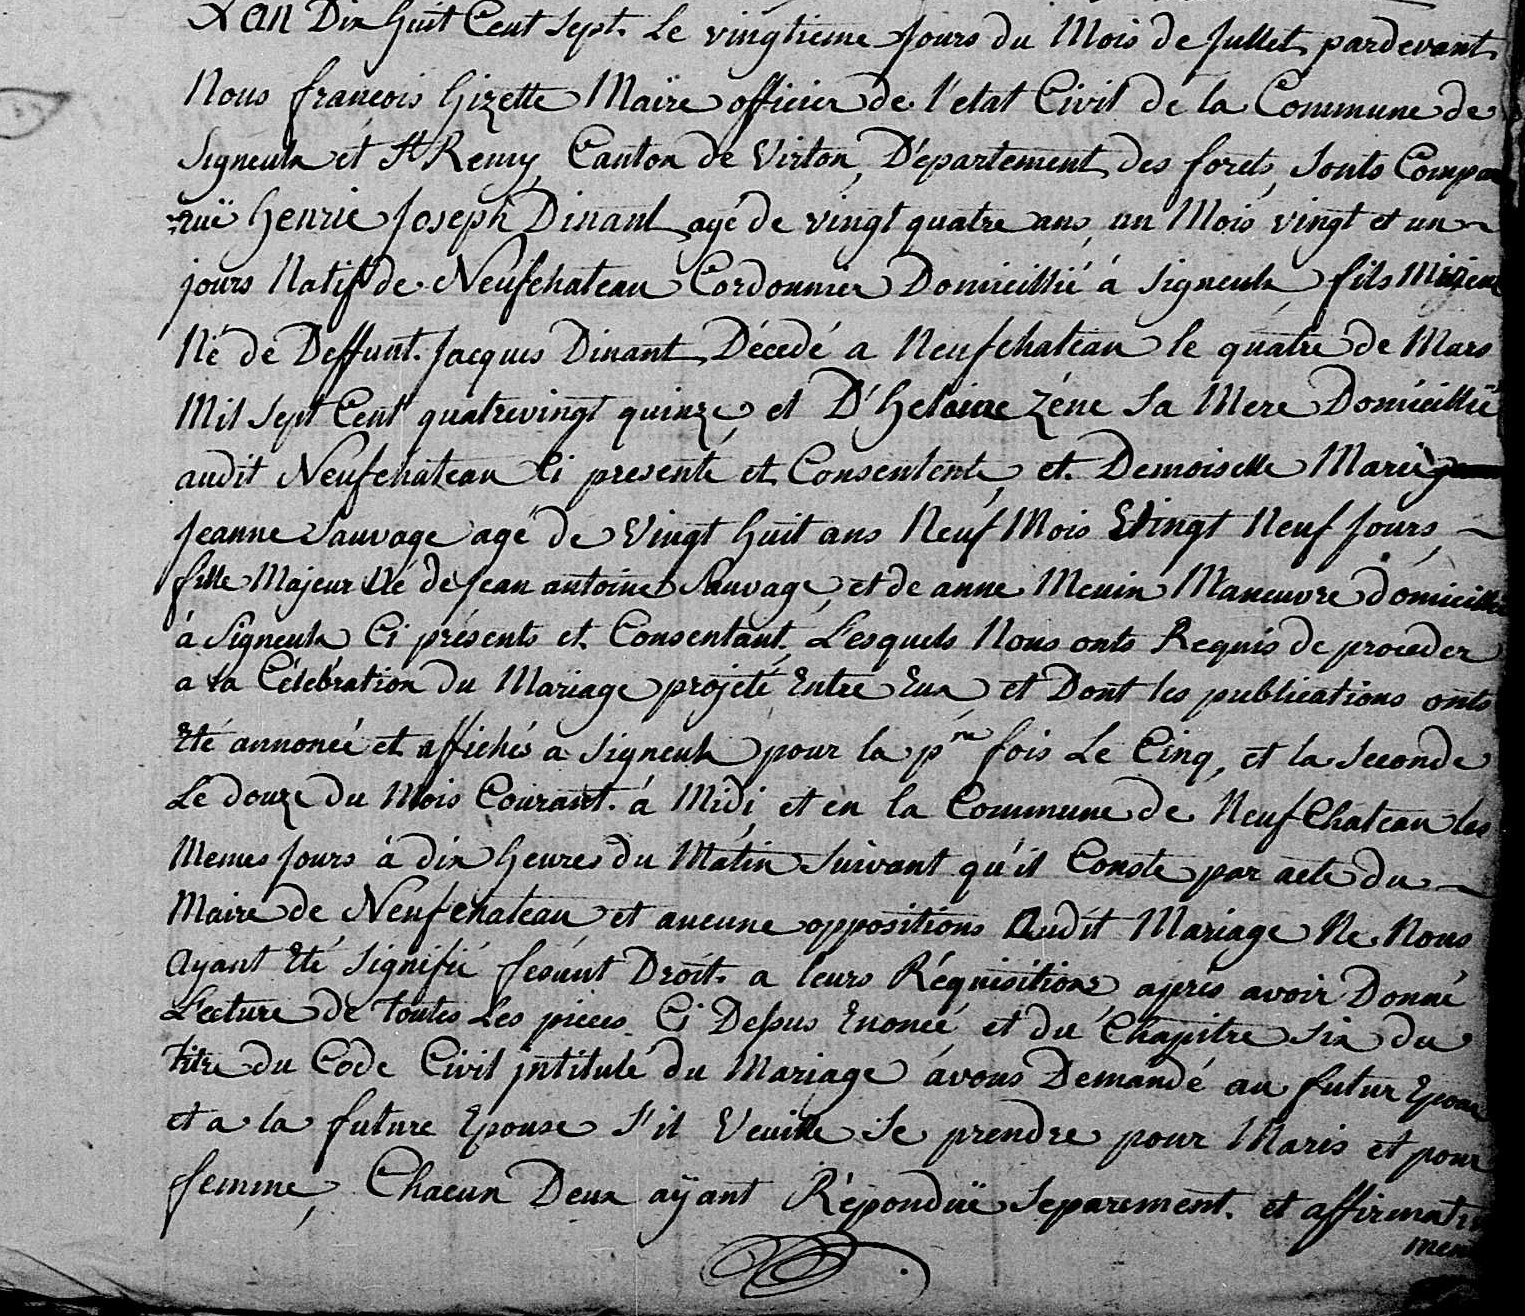 L'an Dix huit Cent Sept. Le vingtieme Jours du Mois de Jullet pardevant
Nous françois Gizette Maire officier de l'etat Civil de la Commune de
Signeulx et St Remy, Canton de Virton, Département des forets, Sonts Compa
ruë henrie Joseph Dinant agé de vingt quatre ans, un Mois vingt et un
jours Natif de Neufchateau Cordonnier Domicillié á Signeulx, fils Mineur
Né de Deffunt. Jacques Dinant Décedé a Neufchateau le quatre de Mars
Mil Sept Cent quatrevingt quinze, et D'helaine Zéne Sa Mere Domicillié
audit Neufchateau Ci presenté et Consentente, et Demoiselle Marie
Jeanne Sauvage agé de Vingt huit ans Neuf Mois Vingt Neuf Jours,
fille Majeur Né de Jean antoine Sauvage, et de anne Menin Maneuvre domicillié
á Signeulx Ci présents et Consentant, Lesquels Nous onts Requis de proceder
a La Célébration du Mariage projeté Entre Eux, et Dont les publications onts
Eté annoncé et affichés a Signeulx pour la pre fois Le Cinq, et la Seconde
Le douze du Mois Courant. á Midi, et en la Commune de Neufchateau les
Memes Jours á dix heures du Matin Suivant qu'il Conste par acte du
Maire de Neufchateau et aucune oppositions Audit Mariage Ne Nous
Ayant Eté Signifié fesant Droit a leurs Réquisitions après avoir Donné
Lecture de toutes Les pieces Ci Dessus Enoncé, et du Chapitre Six du
titre du Code Civil intitulé du Mariage ávons Demandé au futur Epoux
et a la future Epouse S'il Veuille Se prendre pour Maris et pour
femme, Chacun Deux aÿant Réponduë Separement. et affirmative
ment